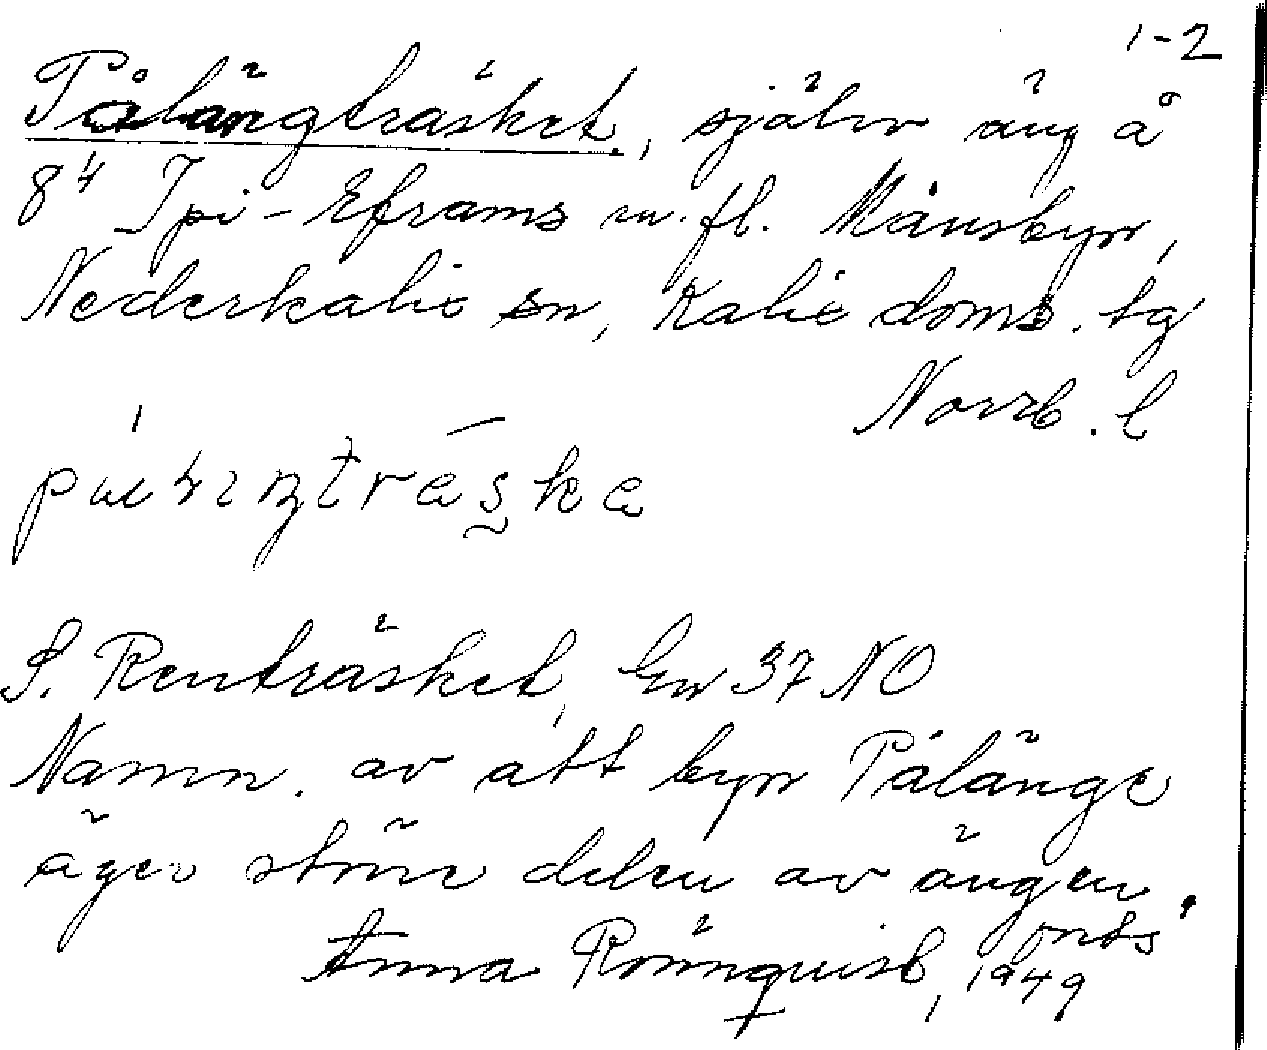 1-2
Pålängträsket, självr äng å
8⁴ Ipi-Eframs m. fl. Månsbyn,
Nederkalix sn, Kalix doms. tg
Norrb. l
S. Renträsket, Gw 37 NO
Namn. av att byn Pålänge
äger större delen av ängen.
forts
Anna Rönnquist, 1949